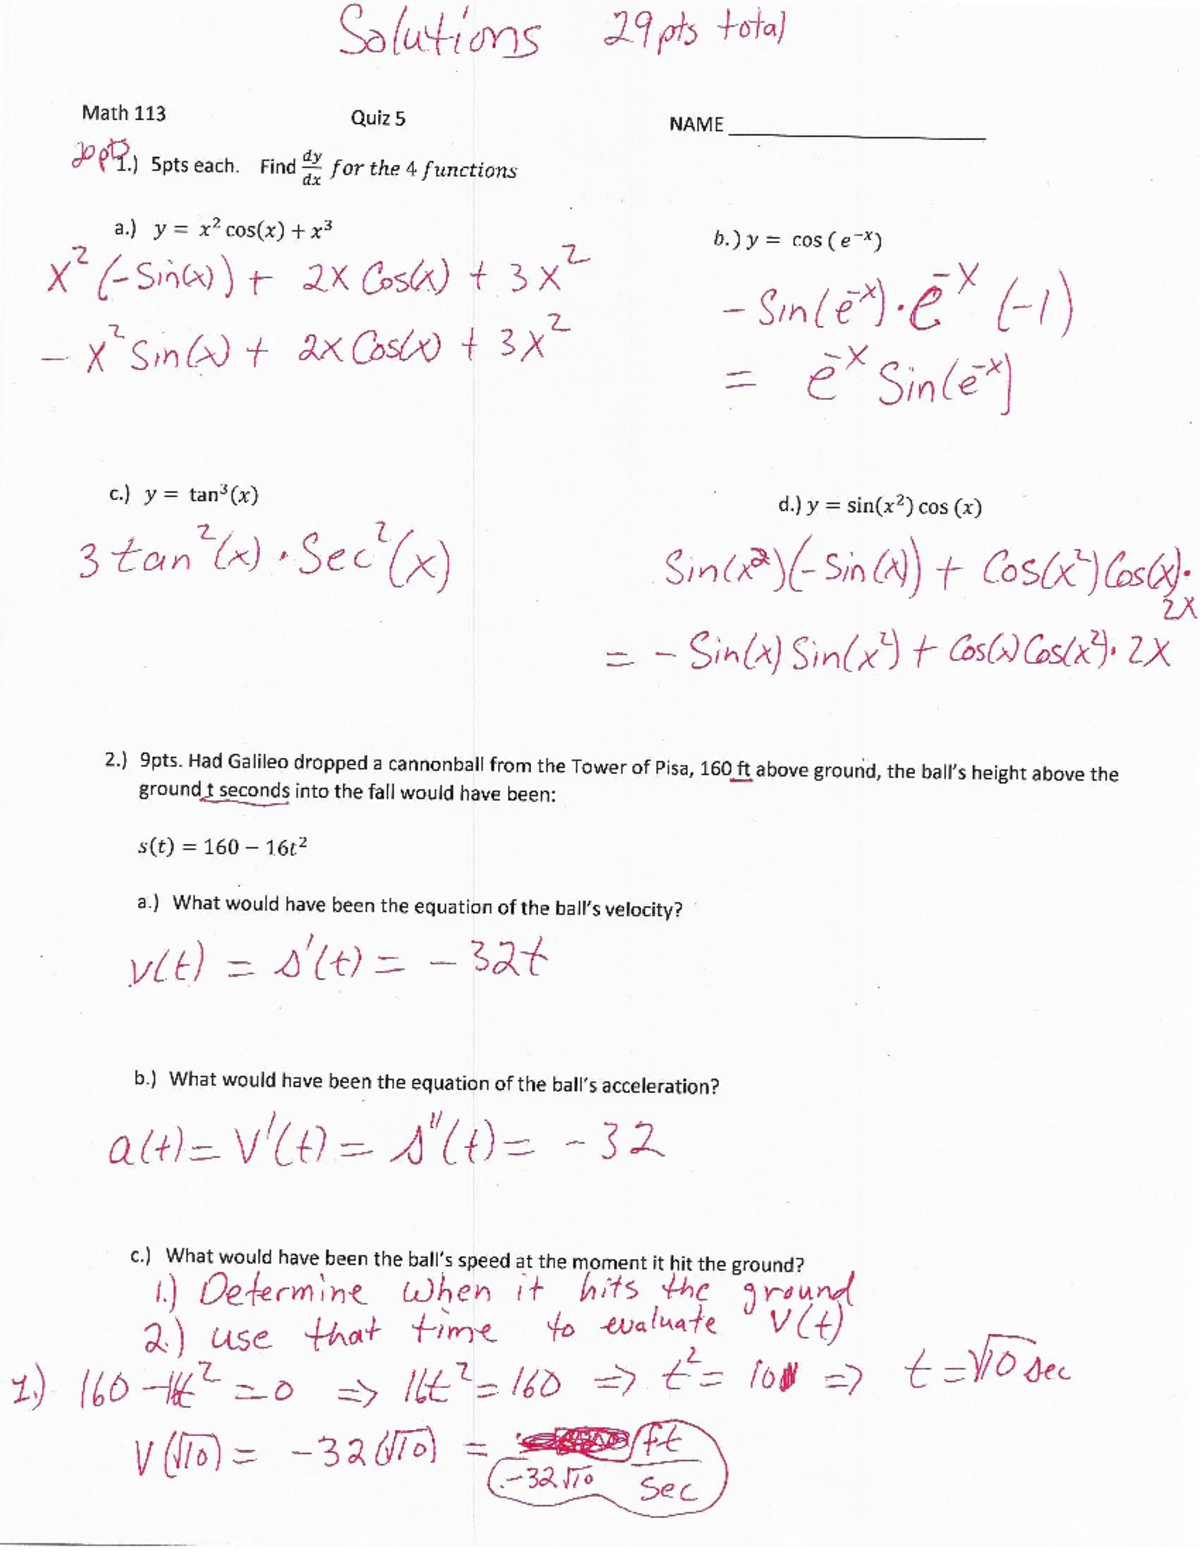 Solutions 29pts total
Math 113 Quiz 5 NAME
20pts
1.) 5pts each. Find dy/dx for the 4 functions
a.) y = x² cos(x) + x³
x²(-Sin(x)) + 2x Cos(x) + 3x²
- x² Sin(x) + 2x Cos(x) + 3x²
b.) y = cos (e⁻ˣ)
- Sin(e⁻ˣ)·e⁻ˣ (-1)
= e⁻ˣ Sin(e⁻ˣ)
c.) y = tan³(x)
3 tan²(x) · Sec²(x)
d.) y = sin(x²) cos (x)
Sin(x²)(-Sin(x)) + Cos(x²) Cos(x)·
2x
= - Sin(x) Sin(x²) + Cos(x) Cos(x²)· 2x
2.) 9pts. Had Galileo dropped a cannonball from the Tower of Pisa, 160 ft above ground, the ball's height above the
ground t seconds into the fall would have been:
s(t) = 160 – 16t²
a.) What would have been the equation of the ball's velocity?
v(t) = s'(t) = - 32t
b.) What would have been the equation of the ball's acceleration?
a(t) = v'(t) = s''(t) = - 32
c.) What would have been the ball's speed at the moment it hit the ground?
1.) Determine when it hits the ground
2.) use that time to evaluate v(t)
1.) 160 - 16t² = 0 => 16t² = 160 => t² = 10 => t = √10 sec
V(√10) = -32(√10) = ft/
-32√10 sec